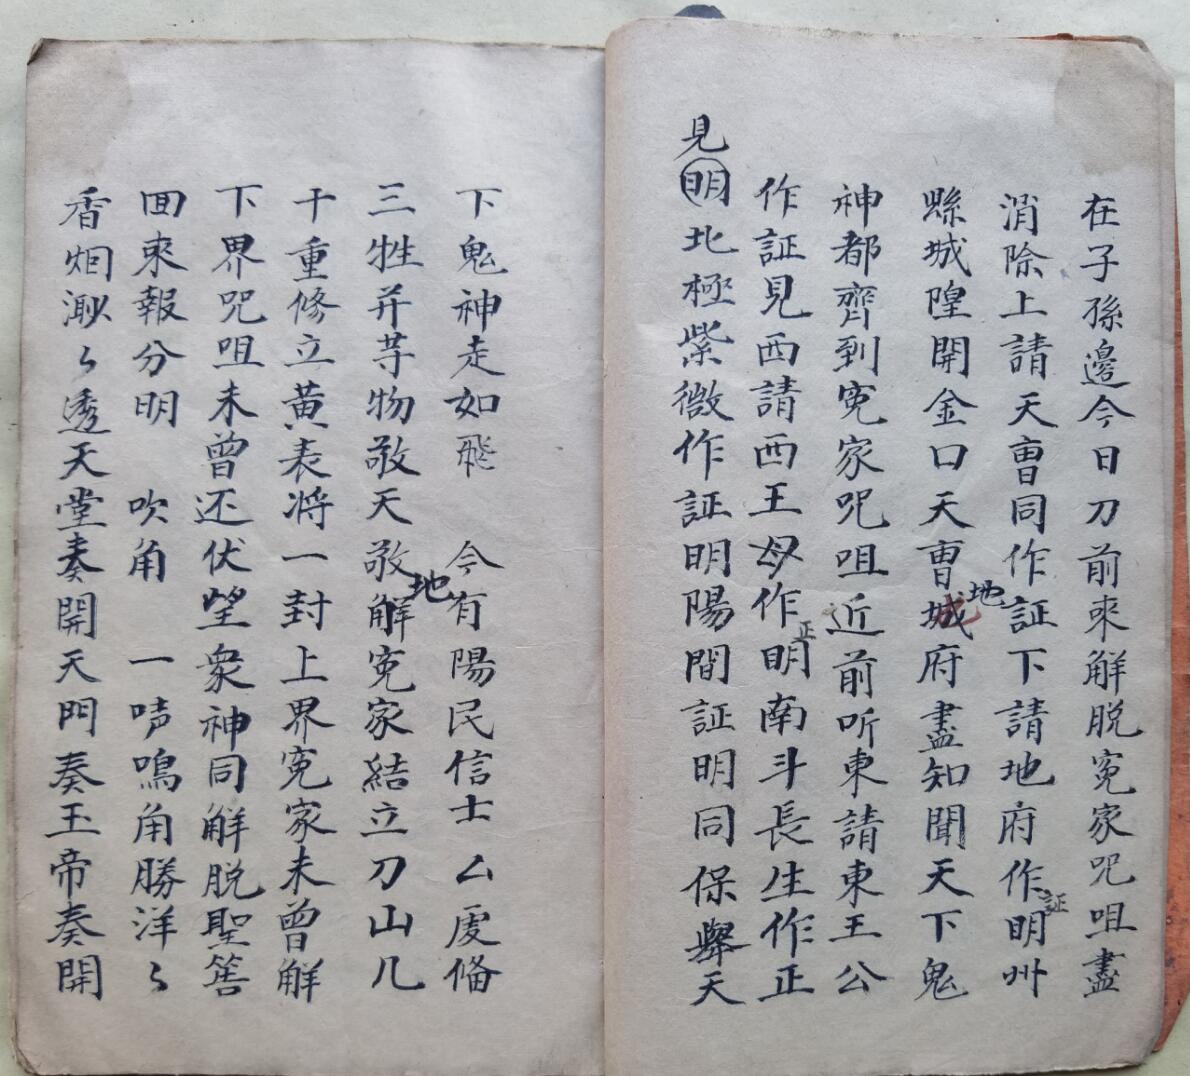 在子孫邊今日刀前來解脱寃家咒咀盡
消除上請天曹同作証下請地府作証明州
縣城隍開金口天曹地府盡知聞天下鬼
神都齊到寃家咒咀近前听東請東王公
作証見西請西王母作証明南斗長生作正
見明北極紫微作証明陽間証明同保舉天
下鬼神走如飛 今有陽民信士厶處俻
三牲并等物敬天敬地解寃家結立刀山几
十重修立黄表将一封上界寃家未曾解
下界咒咀未曾还伏望衆神同解脱聖筶
囬來報分明 吹角 一声鳴角勝洋〻
香烟渺〻透天堂奏開天門奏玉帝奏開